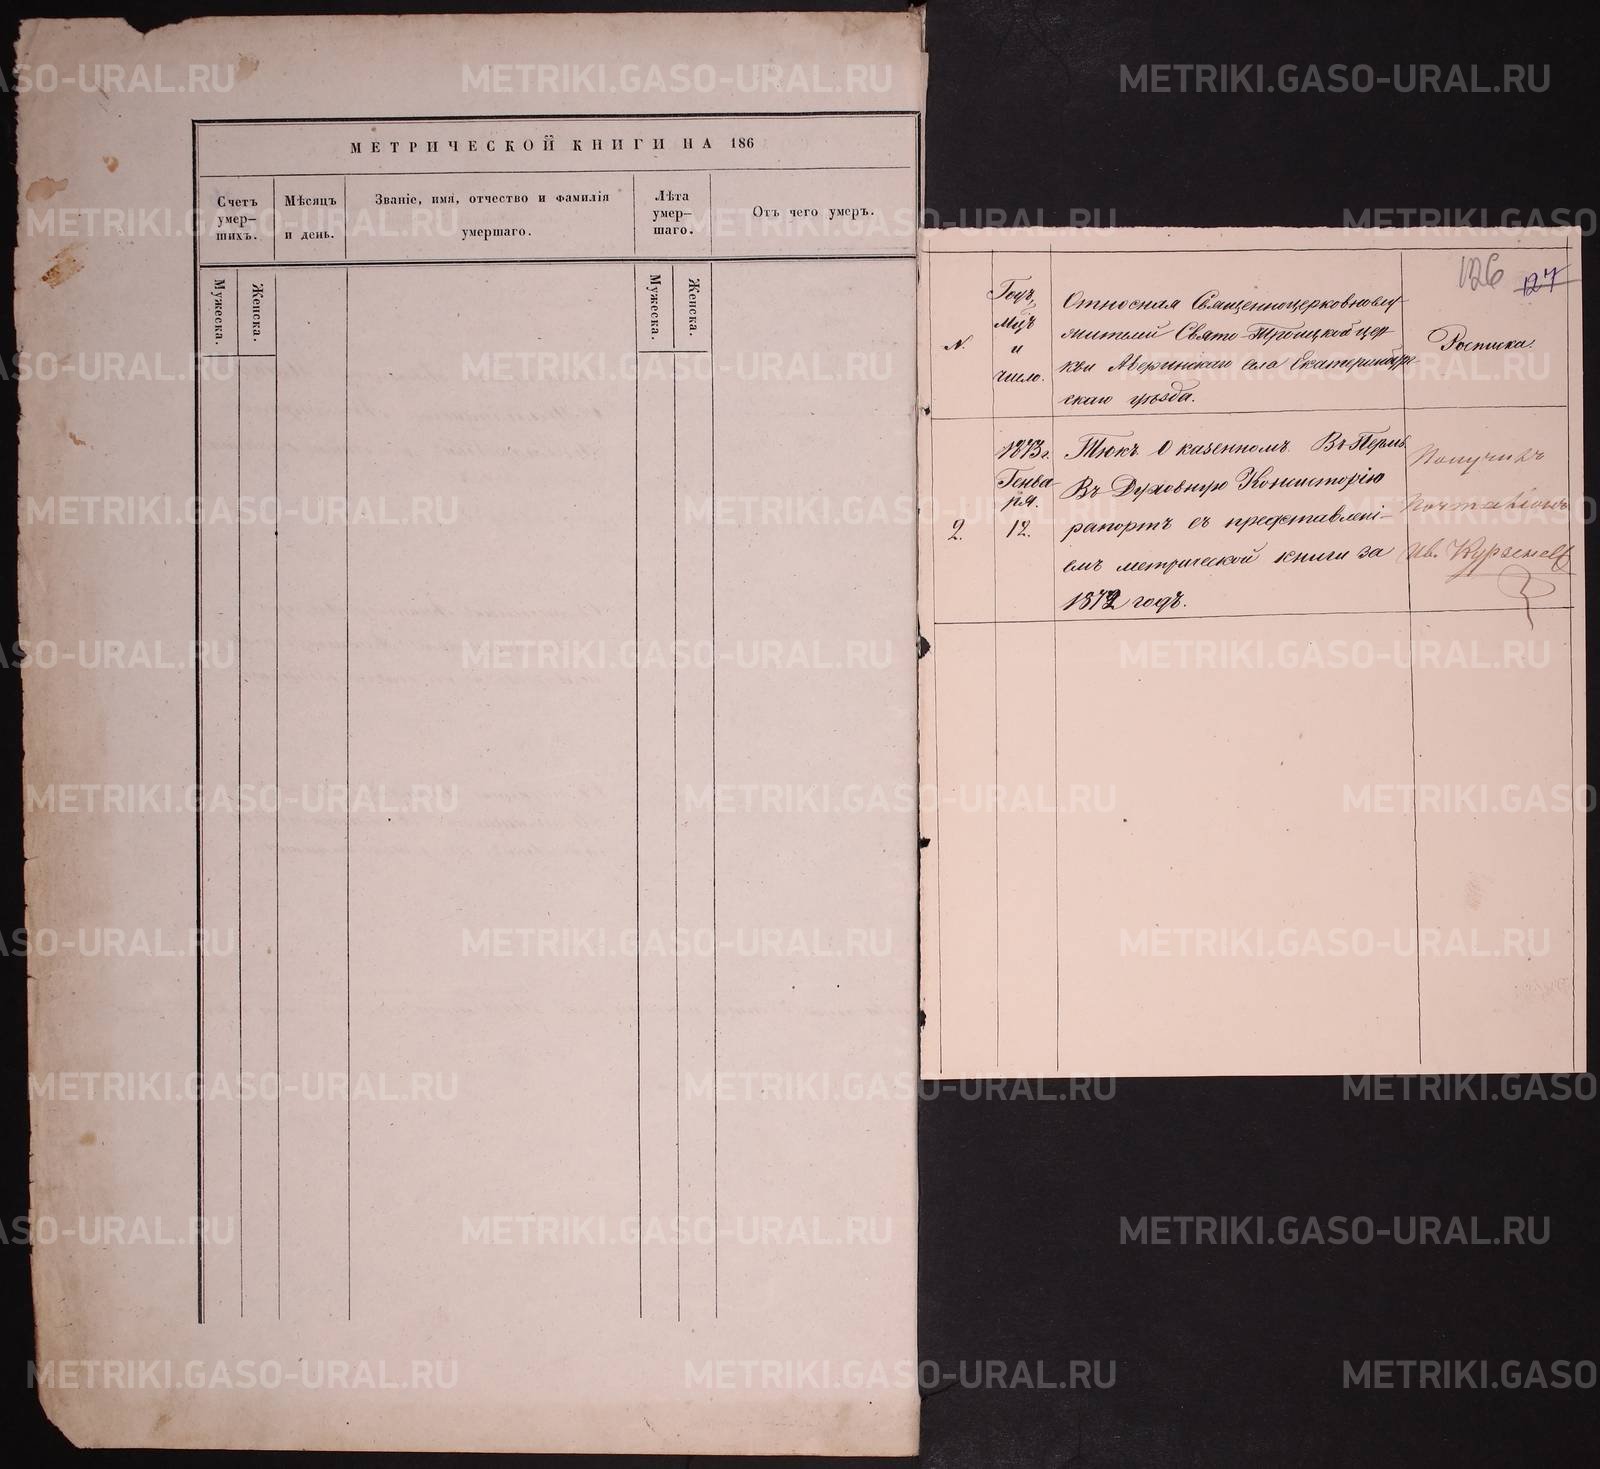 МЕТРИЧЕСКОЙ КНИГИ НА 186
Счетъ умер–шихъ.
Мѣсяцъ и день.
Званіе, имя, отчество и фамилія умершаго.
Лѣта умер–шаго.
Отъ чего умеръ.
Мужеска.
Женска.
Мужеска.
Женска.
126 127
N.
Годъ,
мцъ
и
число.
Относная Священноцерковнослу-
жителей Свято-Троицкой цер-
кви Аверинскаго села Екатеринбург-
скаго уѣзда.
Росписка.
2.
1873 г.
Генва-
ря.
12.
Тюкъ О казенномъ. Въ Пермь.
Въ Духовную Консисторію
рапортъ съ представлені-
емъ метрической книги за
1872 годъ.
Получилъ
Почталіонъ
Ив.
METRIKI.GASO-URAL.RU